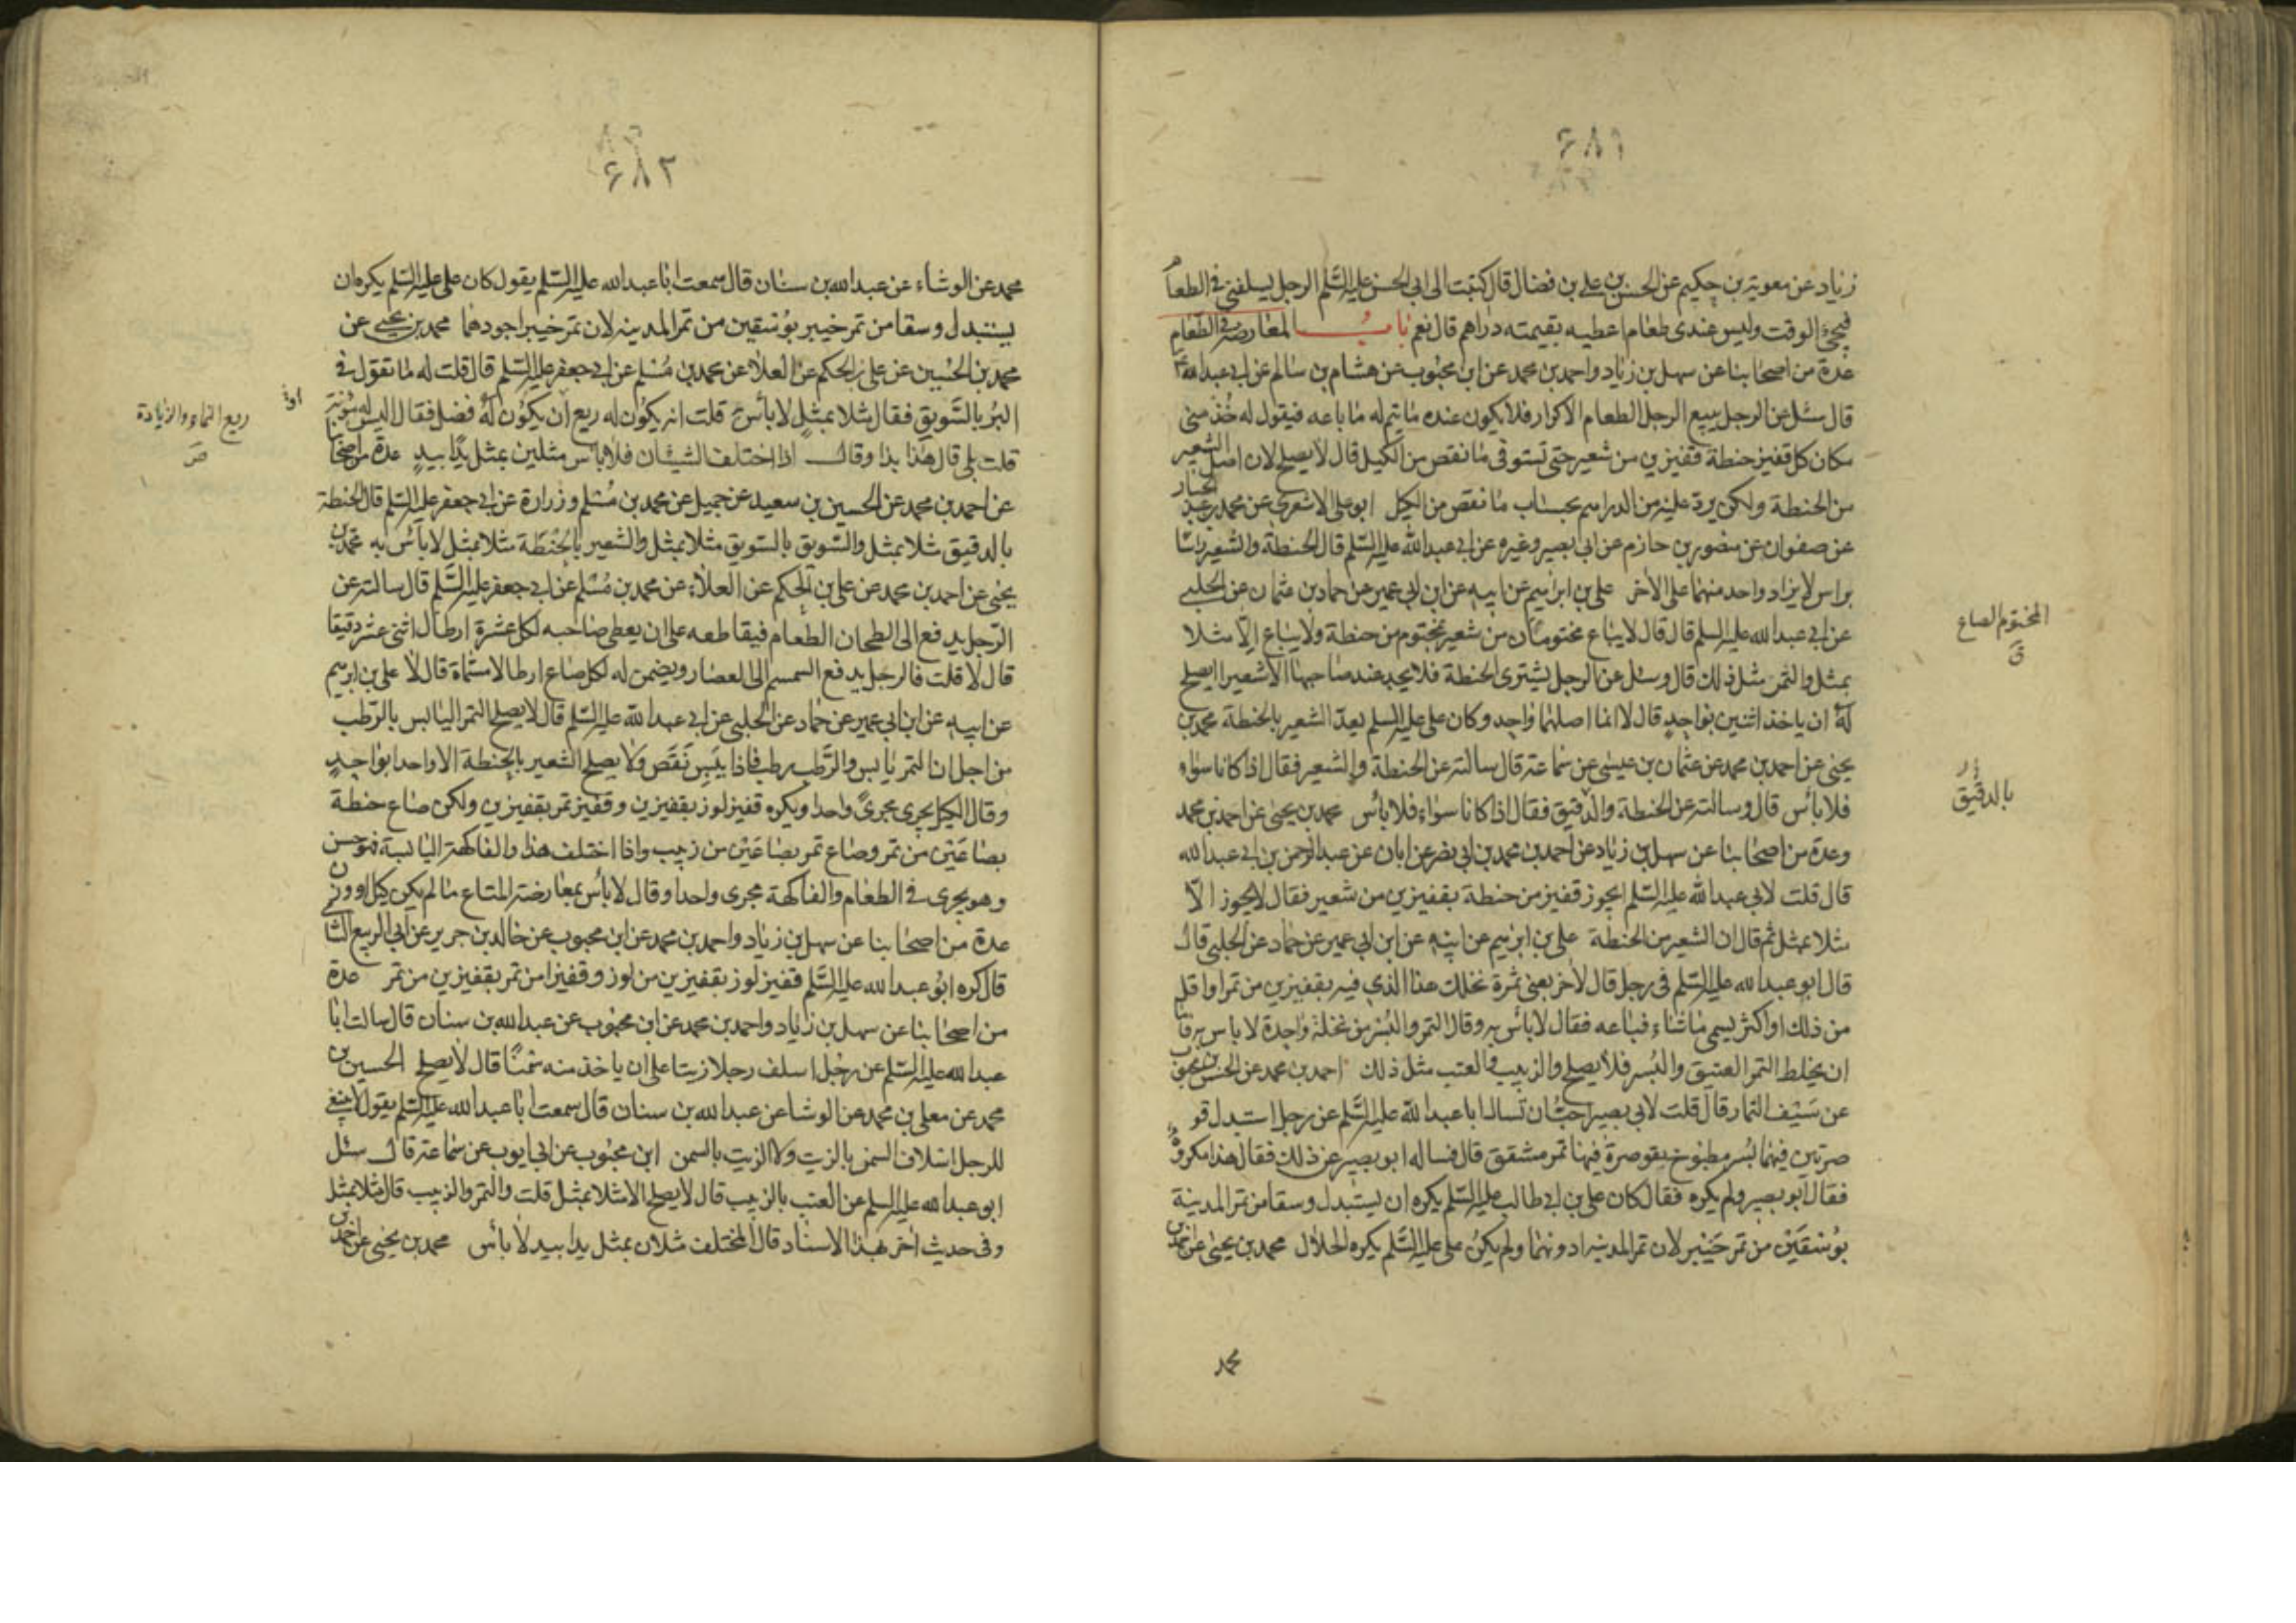 ۶۸۱
زياد عن معوية بن حكيم عن الحسن بن علي بن فضال قال كتبت الى ابى الحسن عليه السّلم الرجل يسلفنى فى الطعام
فيجئ الوقت وليس عندى طعام اعطيه بقيمته دراهم قال نعم باب المعاوضة فى الطّعام
عدة من اصحابنا عن سهل بن زياد واحمد بن محمد عن ابن محبوب عن هشام بن سالم عن ابى عبد الله ع
قال سئل عن الرجل يبيع الرجل الطعام الاكرار فلا يكون عنده ما يتم له ما باعه فيقول له خذ منى
مكان كل قفيز حنطة قفيزين من شعير حتى تستوفى ما نقص من الكيل قال لا يصلح لان اصل الشعير
من الحنطة ولكن يرد عليه من الدراهم بحساب ما نقص من الكيل ابو على الاشعرى عن محمد بن عبد الجبار
عن صفوان عن منصور بن حازم عن ابى بصير وغيره عن ابى عبد الله عليه السّلم قال الحنطة والشعير راسا
براس لا يزاد واحد منهما على الاخر على بن ابراهيم عن ابيه عن ابن ابى عمير عن حماد بن عثمان عن الحلبى
عن ابى عبد الله عليه السلم قال قال لا يباع مختومان من شعير بمختوم من حنطة ولا يباع الّا مثلا
بمثل والتمر مثل ذلك قال وسئل عن الرجل يشترى الحنطة فلا يجد عند صاحبها الا شعيرا ايصلح
له ان ياخذ اثنين بواحد قال لا انما اصلهما واحد وكان على عليه السلم يعدّ الشعير بالحنطة محمد بن
يحيى عن احمد بن محمد عن عثمان بن عيسى عن سماعة قال سالته عن الحنطة والشعير فقال اذا كانا سواء
فلا بأس قال وسالته عن الحنطة والدقيق فقال اذا كانا سواء فلا بأس محمد بن يحيى عن احمد بن محمد
وعدة من اصحابنا عن سهل بن زياد عن احمد بن محمد بن ابى نصر عن ابان عن عبد الرحمن بن ابى عبد الله
قال قلت لابى عبد الله عليه السّلم ايجوز قفيز من حنطة بقفيزين من شعير فقال لا يجوز الّا
مثلا بمثل ثم قال ان الشعير من الحنطة على بن ابراهيم عن ابيه عن ابن ابى عمير عن حماد عن الحلبى قال
قال ابو عبد الله عليه السّلم فى رجل قال لاخر بعنى ثمرة نخلك هذا الذى فيه بقفيزين من تمر او اقل
من ذلك او اكثر يسمى ما شاء فباعه فقال لا بأس به وقال التمر والبسر من نخلة واحدة لا باس به فاما
ان يخلط التمر العتيق والبسر فلا يصلح والزبيب والعنب مثل ذلك احمد بن محمد عن الحسن بن محبوب
عن سيف التمار قال قلت لابى بصير احبّ ان تسال ابا عبد الله عليه السّلم عن رجل استبدل قو
صرتين فيهما بسر مطبوخ بقوصرة فيها تمر مشقق قال فساله ابو بصير عن ذلك فقال هذا مكروه
فقال ابو بصير ولم يكره فقال كان على بن ابى طالب عليه السّلم يكره ان يستبدل وسقا من تمر المدينة
بوسقين من تمر خيبر لان تمر المدينة ادونهما ولم يكن على عليه السّلم يكره الحلال محمد بن يحيى عن احمد بن
محمد
المختوم الصاع
ق
بالدقيق
۶۸۲
محمد عن الوشاء عن عبد الله بن سنان قال سمعت ابا عبد الله عليه السّلم يقول كان على عليه السّلم يكره ان
يستبدل وسقا من تمر خيبر بوسقين من تمر المدينة لان تمر خيبر اجودهما محمد بن يحيى عن
محمد بن الحسين عن على بن الحكم عن العلاء عن محمد بن مسلم عن ابى جعفر عليه السّلم قال قلت له ما تقول فى
البر بالسّويق فقال مثلا بمثل لا بأس به قلت انه يكون له ريع ان يكون له فضل فقال اليس له مؤنة
قلت بلى قال هذا بذا وقال اذا اختلف الشيئان فلا باس مثلين بمثل يدا بيد عدة من اصحابنا
عن احمد بن محمد عن الحسين بن سعيد عن جميل عن محمد بن مسلم وزرارة عن ابى جعفر عليه السّلم قال الحنطة
بالدقيق مثلا بمثل والسّويق بالسّويق مثلا بمثل والشعير بالحنطة مثلا بمثل لا بأس به محمد بن
يحيى عن احمد بن محمد عن على بن الحكم عن العلاء عن محمد بن مسلم عن ابى جعفر عليه السّلم قال سالته عن
الرّجل يدفع الى الطحان الطعام فيقاطعه على ان يعطى صاحبه لكل عشرة ارطال اثنى عشر دقيقا
قال لا قلت فالرجل يدفع السمسم الى العصار ويضمن له لكل صاع ارطالا مسماة قال لا على بن ابرهيم
عن ابيه عن ابن ابى عمير عن حماد عن الحلبى عن ابى عبد الله عليه السّلم قال لا يصلح التمر اليابس بالرّطب
من اجل ان التمر يابس والرّطب رطب فاذا يبس نقص ولا يصلح الشعير بالحنطة الا واحدا بواحد
وقال الكيل يجرى مجرى واحدا ويكره قفيز لوز بقفيزين وقفيز تمر بقفيزين ولكن صاع حنطة
بصاعين من تمر وصاع تمر بصاعين من زبيب واذا اختلف هذا والفاكهة اليابسة فهو حسن
وهو يجرى فى الطعام والفاكهة مجرى واحدا وقال لا بأس بمعاوضة المتاع ما لم يكن كيل او وزن
عدة من اصحابنا عن سهل بن زياد واحمد بن محمد عن ابن محبوب عن خالد بن جرير عن ابى الربيع الشا
قال كره ابو عبد الله عليه السّلم قفيز لوز بقفيزين من لوز وقفيزا من تمر بقفيزين من تمر عدة
من اصحابنا عن سهل بن زياد واحمد بن محمد عن ابن محبوب عن عبد الله بن سنان قال سالت ابا
عبد الله عليه السّلم عن رجل اسلف رجلا زيتا على ان ياخذ منه سمنا قال لا يصلح الحسين بن
محمد عن معلى بن محمد عن الوشا عن عبد الله بن سنان قال سمعت ابا عبد الله عليه السّلم يقول لا ينبغى
للرجل اسلاف السمن بالزيت ولا الزيت بالسمن ابن محبوب عن ابى ايوب عن سماعة قال سئل
ابو عبد الله عليه السلم عن العنب بالزبيب قال لا يصلح الا مثلا بمثل قلت والتمر والزبيب قال مثلا بمثل
وفى حديث اخر بهذا الاسناد قال المختلف مثلان بمثل يدا بيد لا بأس محمد بن يحيى عن احمد بن
ريع النماء والزيادة